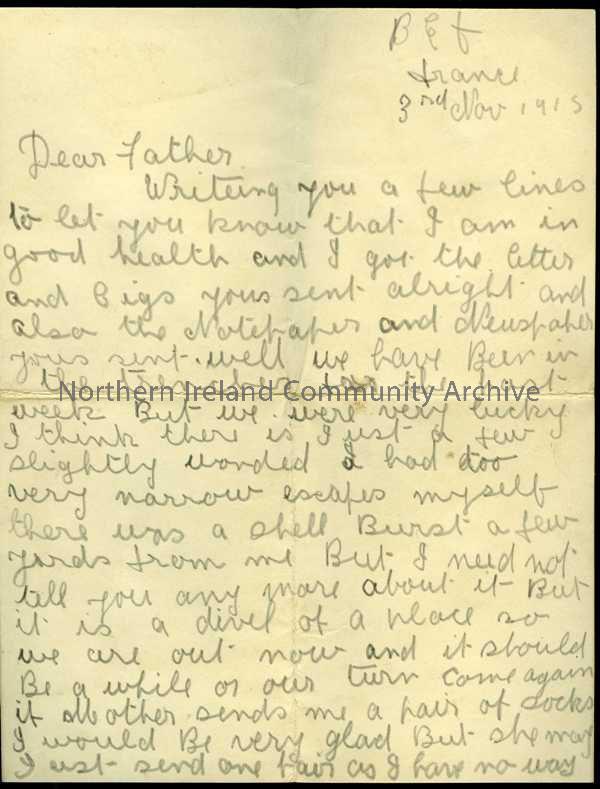 B E f
france
3rd Nov 1915
Dear Father
Writeing you a few lines
to let you know that I am in
good health and I got the letter
and Cigs yous sent alright and
also the Notepaper and Newspaper
yous sent. well we have Been in
the trenches for the last
Northern Ireland Community Archive
week But we were very lucky
I think there is Just a few
slightly wonded I had too
very narrow escapes myself
there was a shell Burst a few
yards from me But I need not
tell you any more about it But
it is a divel of a place so
we are out now and it should
Be a while or our turn come again
if Mother sends me a pair of socks
I would Be very glad But she may
Just send one pair as I have no way